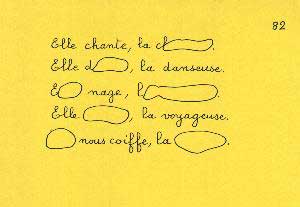 82
Elle chante, la ch
Elle d , la danseuse.
E nage, l
Elle , la voyageuse.
nous coiffe, la .